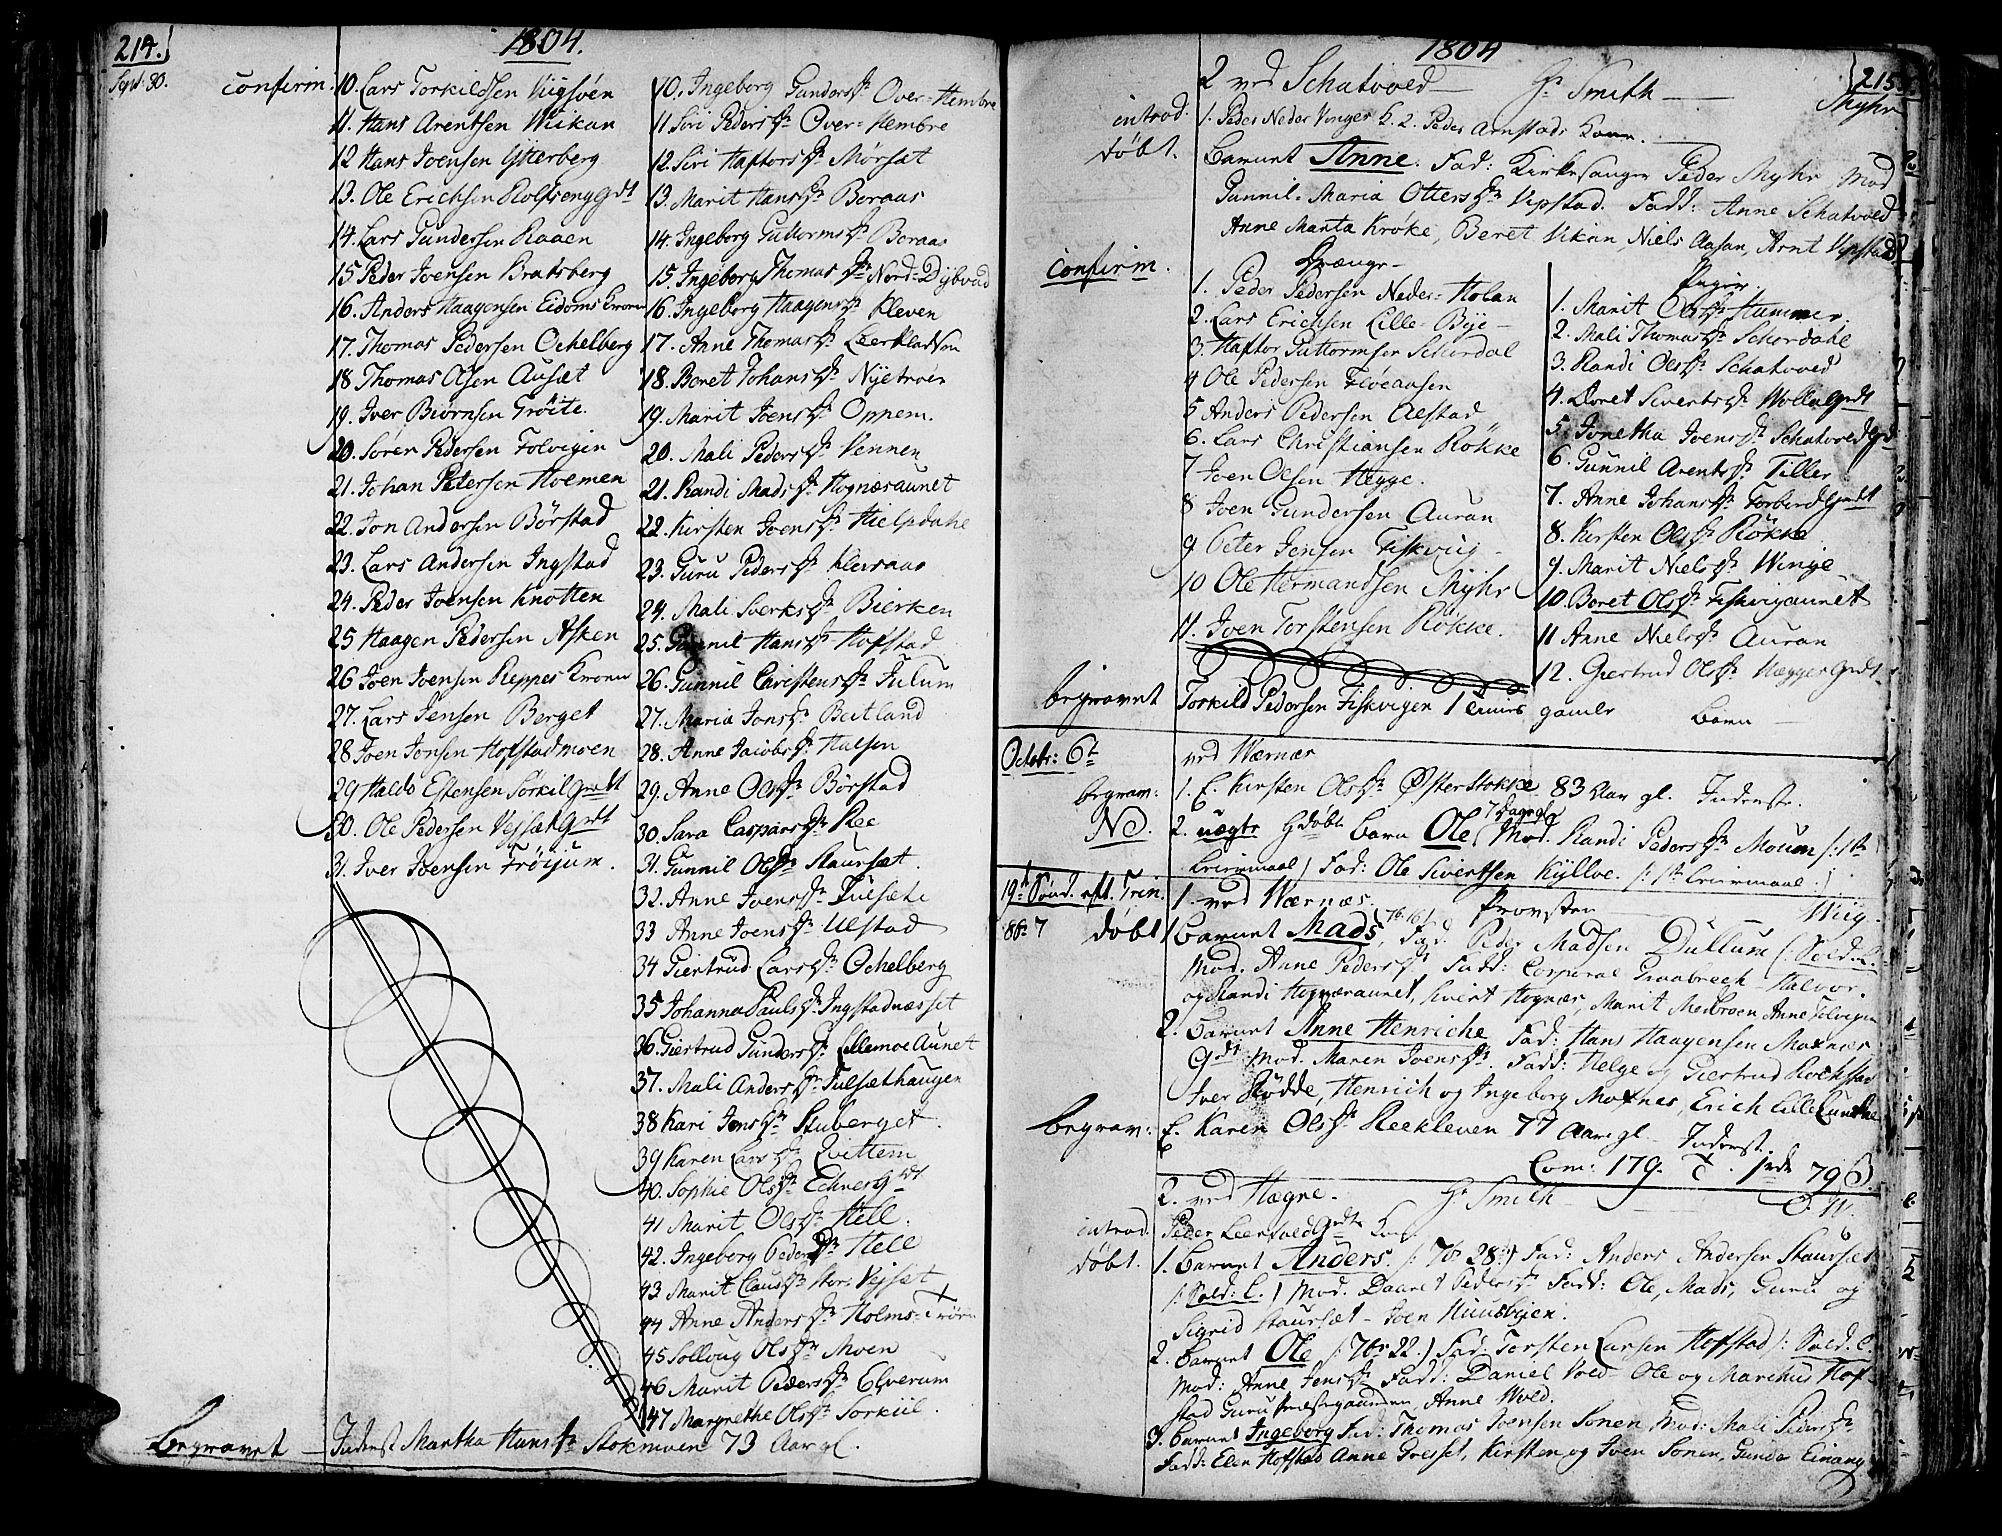 214.
1804.
Sept: 30. confirm: 10. Lars Torkildsen Vigsöen
11. Hans Arentsen Wiikan
12 Hans Joensen Ytterberg
13. Ole Erichsen Rolfseng Gdt
14. Lars Gundersen Raaen
15 Peder Joensen Bratsberg
16. Anders Haagensen Eidoms
17. Thomas Pedersen Ochelberg
18 Thomas Olsen Ausæt
19. Iver Biörnsen Gröite.
20. Sören Pedersen Folvigin
21. Johan Petersen Hoemen
22. Jon Andersen Börstad
23. Lars Andersen Ingstad
24. Peder Joensen Knotten
25 Haagen Pedersen Asken
26 Joen Joensen Reppes
27. Lars Jensen Berget
28 Joen Jonsen Hofstadmoen
29 Haldo Estensen Sörkil Grdt
30. Ole Pedersen Vejsæt Grdt
31. Iver Joensen Fröijum.
10. Ingeborg Gunders D: Over-Hembre
11 Siri Peders D: Over-Hembre
12. Siri Haftors D: Mörsæt
13. Marit Hans D: Boraas
14. Ingeborg Guttorms D: Boraas
15. Ingeborg Thomas D: Nord-Dybvad
16. Ingeborg Haagens D: Kleven
17. Anne Thomas D:
18. Beret Johans D: Nyetröen
19. Marit Joens D: Oppem.
20. Mali Peders D: Vennen
21. Randi Mads D: Hognæsaunet
22. Kirsten Joens D: Hielpdahl
23. Guru Peders D: Kleivaas
24. Mali Sverks D: Bierken
25. Gunnil Hans D: Hofstad
26. Gunnil Christens D: Julum
27. Maria Jons D: Beitland
28. Anne Jacobs D: Halsen
29. Anne Ols D: Börstad
30 Sara Caspars D: Ree
31. Gunnil Ols D: Staursæt
32. Anne Joens D: Fulsæth
33 Anne Joens D: Ulstad
34 Giertrud Lars D: Ochelberg
35 Johanna Pauls D: Ingstadnæsset
36. Giertrud Gunders D: Lillemoe Aunet
37. Mali Anders D: Fulsæthaugen
38 Kari Jons D: Stuberget
39 Karen Lars D: Qvittem
40. Sophie Ols D: Echner Grdt
41 Marit Ols D: Hell.
42. Ingeborg Peders D: Hell
43 Marit Claus D: Stor: Vejsæt
44 Anne Anders D: Holms-Tröen
45 Sollvug Ols D: Moen
46 Marit Peders D: Elverum
47 Margrethe Ols D: Sorkiil.
Begravet - Inderst Martha Hans D: Stokmoen 73 Aar gl.
1804
215.
2 ved Schatvold Hr Smith
Myhr
introd. 1. Peder Neder Vinges K. 2. Peder Arnstads Kone.
döbt. Barnet Anne. Fad: Kirkesanger Peder Myhr Mod
Gunnil-Maria Otters D: Vipstad. Fadd: Anne Schatvold
Anne Marta Kröke, Beret Vikan, Niels Aasan, Arnt Vipstad
confirm. Drænge
1. Peder Pedersen Neder-Holan
2. Lars Erichsen Lille-Bye
3. Haftor Guttormsen Schordal
4 Ole Pedersen Flöeansen
5 Anders Pedersen Alstad
6. Lars Christiansen Rökke
7 Joen Olsen Hegge.
8 Joen Gundersen Auran
9 Peter Jensen Fiskvig
10 Ole Hermandsen Myhr
11. Joen Torstensen Rökke.
Piger
1. Marit Ols D: Hammer.
2. Mali Thomas D: Schordahl
3. Randi Ols D: Schatvold
4. Doret Siverts D: Wollan Grdt
5. Jonetha Joens D: Schatvold Grdt
6. Gunnil Arents D: Tiller
7. Anne Johans D: Forbord Grdt
8. Kirsten Ols D: Rökke
9. Marit Niels D: Winge
10. Beret Ols D: Fiskvigaunet
11 Anne Niels D: Auran
12. Giertrud Ols D: Hegges Grdt
begravet Torkild Pedersen Fiskvigen 1 Uuers gamle Barn
Octobr: 6t ved Wærnæs
begrav: 1. E. Kirsten Ols D: Östersokke 83 Aar gl. Inderste.
NB. 2. uægte Hdöbt barn Ole (7 Dage gl) Mod. Randi Peders D: Mouum /: 1te
Leiermaal) Fad: Ole Sivertsen Kyllve. /: 1te Leiermaal :/
19d Sønd. eft. Trin. 1. ved Wærnæs. Provsten Wiig.
8br 7 döbt 1 Barnet Mads, Fad. Peder Madsen Dullum (: Sold. :
Mod. Anne Peders D: Fadd: Corporal Halvor.
og Randi Hognæsaunet, Sivert Hognæs, Marit Mælbroen Anne Folvigin
2. Barnet Anne Henriche Fad: Hans Haagensen Moxnæs
Grdt Mod. Maren Joens D: Fadd: Helge og Giertrud Rochstad
Iver Rödde, Henrich og Ingeborg Moxnes, Erich Lille
begrav: E. Karen Ols D: Reekleven 77 Aar gl. Inderst.
Com: 179. 1 rdr 79
2. ved Hægre. Hr Smith
introd. Peder Leerfald Grdt Kone
döbt. 1. Barnet Anders. /: 7br 28 :/ Fad: Anders Andersen Staursæt
/: Sold: L. / Mod. Daaret Peders D: Fadd: Ole, Mads, Guru og
Sigrid Staursæt - Joen Huusbyen.
2. Barnet Ole /: 7br 22.) Fad: Torsten Larsen Hofstad /: Sold. L.
Mod: Anne Jens D: Fadd: Daniel Vold - Ole og Marchus Hof-
stad Guru Anne Wold.
3. Barnet Ingeborg Fad: Thomas Joensen Sonen Mod: Mali Peders D:
Fadd: Elen Hofstad Anne Græsset, Kirsten og Joen Sonen, Gunder Einang